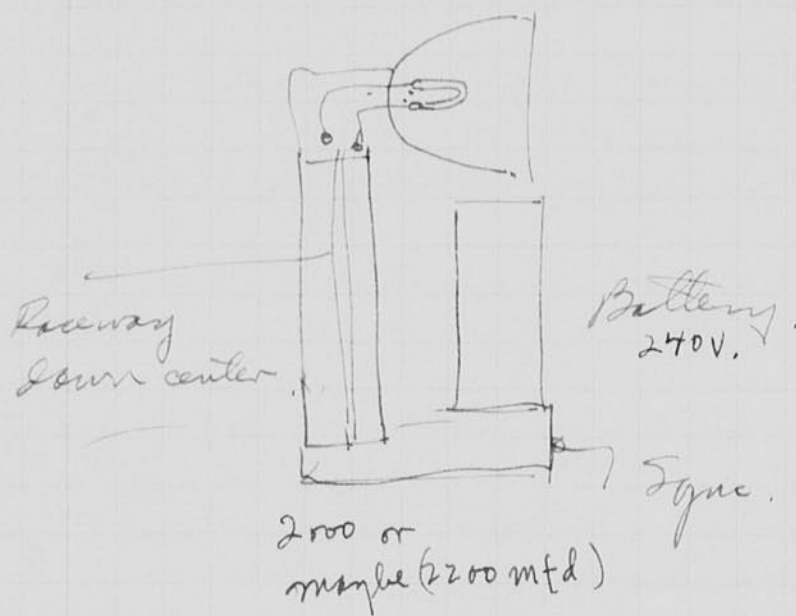 Raceway
down center
Battery.
240V.
Sync.
2000 or
maybe (2200 mfd)